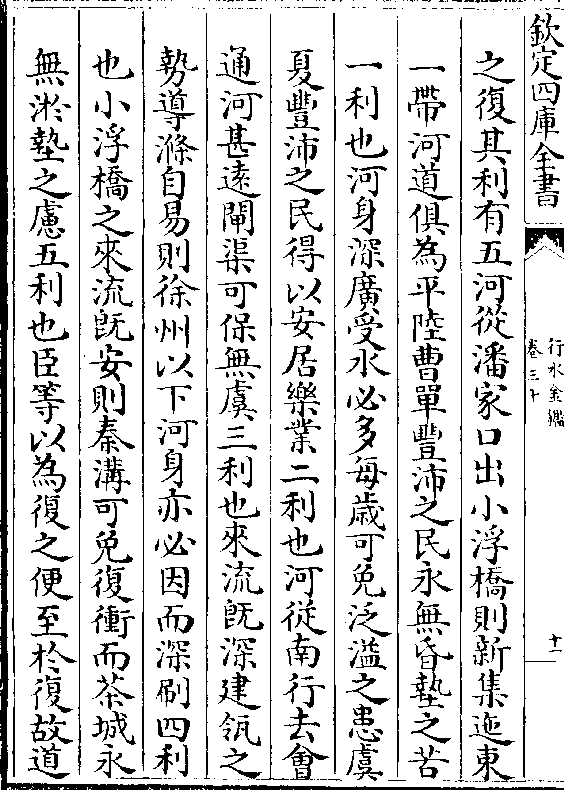 欽定四庫全書
行水金鑑
卷三十
十一
之復其利有五河從潘家口出小浮橋則新集迤東
一帶河道俱為平陸曹單豐沛之民永無昏墊之苦
一利也河身深廣受水必多每歲可免泛溢之患虞
夏豐沛之民得以安居樂業二利也河從南行去會
通河甚遠閘渠可保無虞三利也來流既深建瓴之
勢導滌自易則徐州以下河身亦必因而深刷四利
也小浮橋之來流既安則秦溝可免復衝而茶城永
無淤墊之慮五利也臣等以為復之便至於復故道